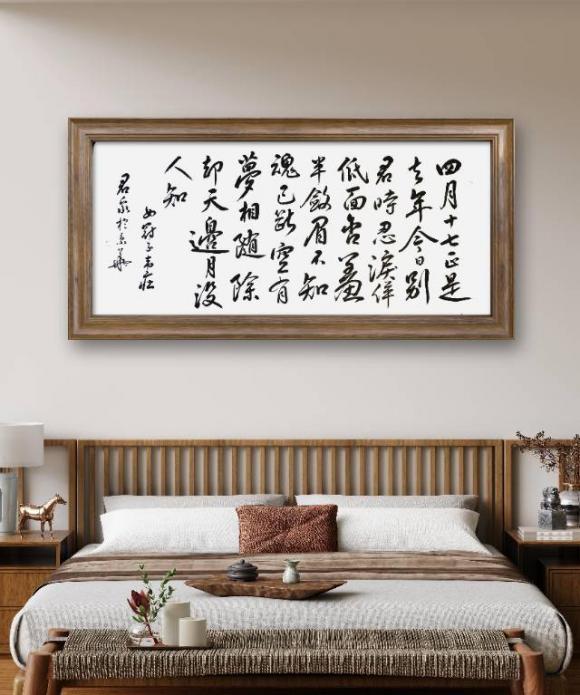 四月十七正是
去年今日别
君時忍淚佯
低面含羞
半敛眉不知
魂已断空有
夢相隨除
却天邊月没
人知
女冠子韦庄
君泉於京華